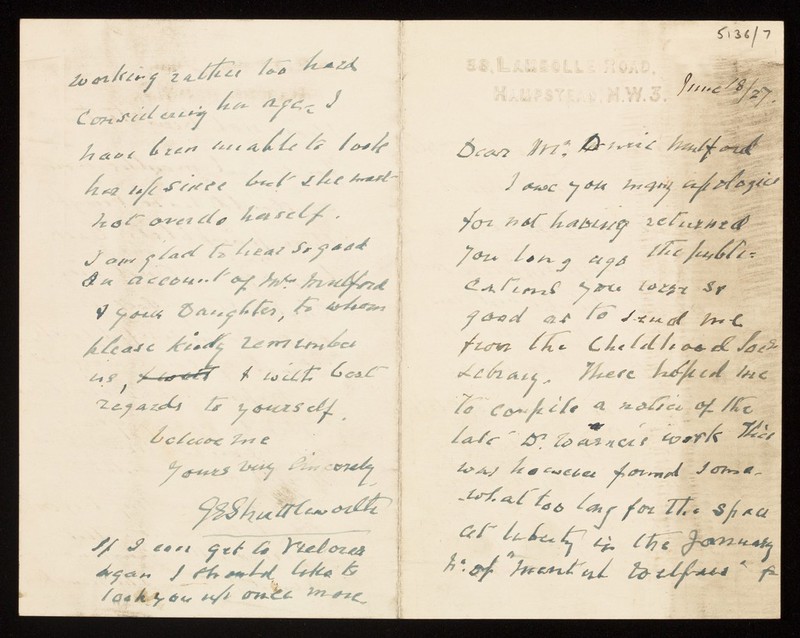 5136/7
58, LAMBOLLE ROAD,
HAMPSTEAD, N.W.3.
June 18/27.
Dear Mr. Mulford
I owe you many apologies
for not having returned
you long ago the publi=
cations you were so
good as to send me
from the Childhood Socy
Library. These helped me
to compile a notice of the
late Dr. Warner's work This
was however found some-
-what too long for the space
at liberty in the January
No. of "Mental Welfare" &
working rather too hard
considering her age. I
have been unable to look
her up since but she must
not overdo herself.
I am glad to hear so good
an account of Mrs. Mulford
& your Daughter, to whom
please kindly remember
us, & with & with best
regards to yourself.
believe me
Yours very Sincerely
G E Shuttleworth
If I can get to
again I should like to
look you up once more